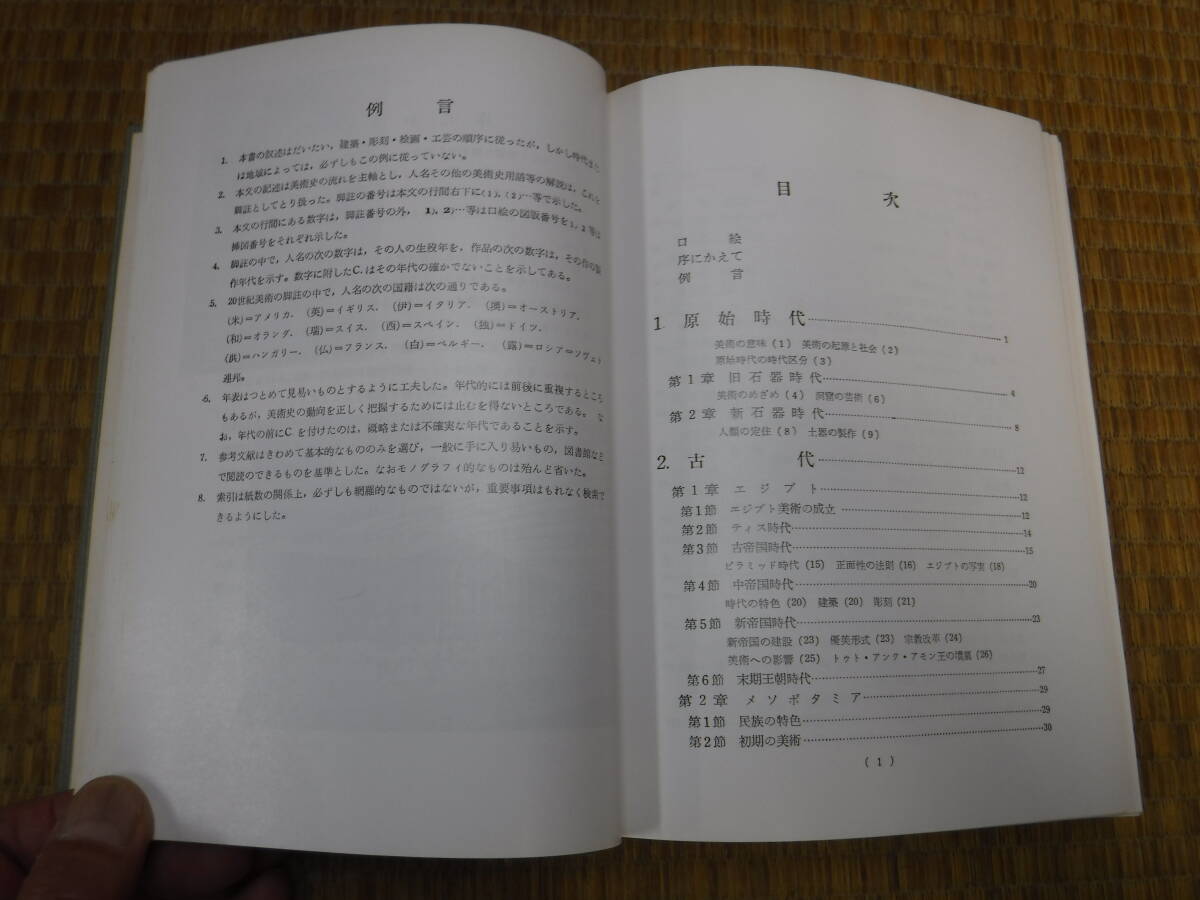 例言
1. 本書の叙述はだいたい，建築・彫刻・絵画・工芸の順序に従ったが，しかし時代また
は地域によっては，必ずしもこの例に従っていない。
2. 本文の記述は美術史の流れを主軸とし，人名その他の美術史用語等の解説は，これを
脚註としてとり扱った。脚註の番号は本文の行間右下に(1)，(2)…等で示した。
3. 本文の行間にある数字は，脚註番号の外， 1)，2)…等は口絵の図版番号を1，2 等は
挿図番号をそれぞれ示した。
4. 脚註の中で，人名の次の数字は，その人の生歿年を，作品の次の数字は，その作の製
作年代を示す。数字に附したC.はその年代の確かでないことを示してある。
5. 20世紀美術の脚註の中で，人名の次の国籍は次の通りである。
(米)＝アメリカ． (英)＝イギリス． (伊)＝イタリア． (墺)＝オーストリア．
(和)＝オランダ． (瑞)＝スイス． (西)＝スペイン． (独)＝ドイツ．
(洪)＝ハンガリー． (仏)＝フランス． (白)＝ベルギー． (露)＝ロシア＝ソヴェト
連邦．
6. 年表はつとめて見易いものとするように工夫した。年代的には前後に重複するところ
もあるが，美術史の動向を正しく把握するためには止むを得ないところである。な
お，年代の前にC を付けたのは，概略または不確実な年代であることを示す。
7. 参考文献はきわめて基本的なもののみを選び，一般に手に入り易いもの，図書館など
で閲読のできるものを基準とした。なおモノグラフィ的なものは殆んど省いた。
8. 索引は紙数の関係上，必ずしも網羅的なものではないが，重要事項はもれなく検索で
きるようにした。
目次
口絵
序にかえて
例言
1. 原始時代……1
美術の意味 (1) 美術の起原と社会 (2)
原始時代の時代区分 (3)
第1章 旧石器時代……4
美術のめざめ (4) 洞窟の芸術 (6)
第2章 新石器時代……8
人類の定住 (8) 土器の製作 (9)
2. 古代……12
第1章 エジプト……12
第1節 エジプト美術の成立……12
第2節 ティス時代……14
第3節 古帝国時代……15
ピラミッド時代 (15) 正面性の法則 (16) エジプトの写実 (18)
第4節 中帝国時代……20
時代の特色 (20) 建築 (20) 彫刻 (21)
第5節 新帝国時代……23
新帝国の建設 (23) 優美形式 (23) 宗教改革 (24)
美術への影響 (25) トゥト・アンク・アモン王の墳墓 (26)
第6節 末期王朝時代……27
第2章 メソポタミア……29
第1節 民族の特色……29
第2節 初期の美術……30
(1)